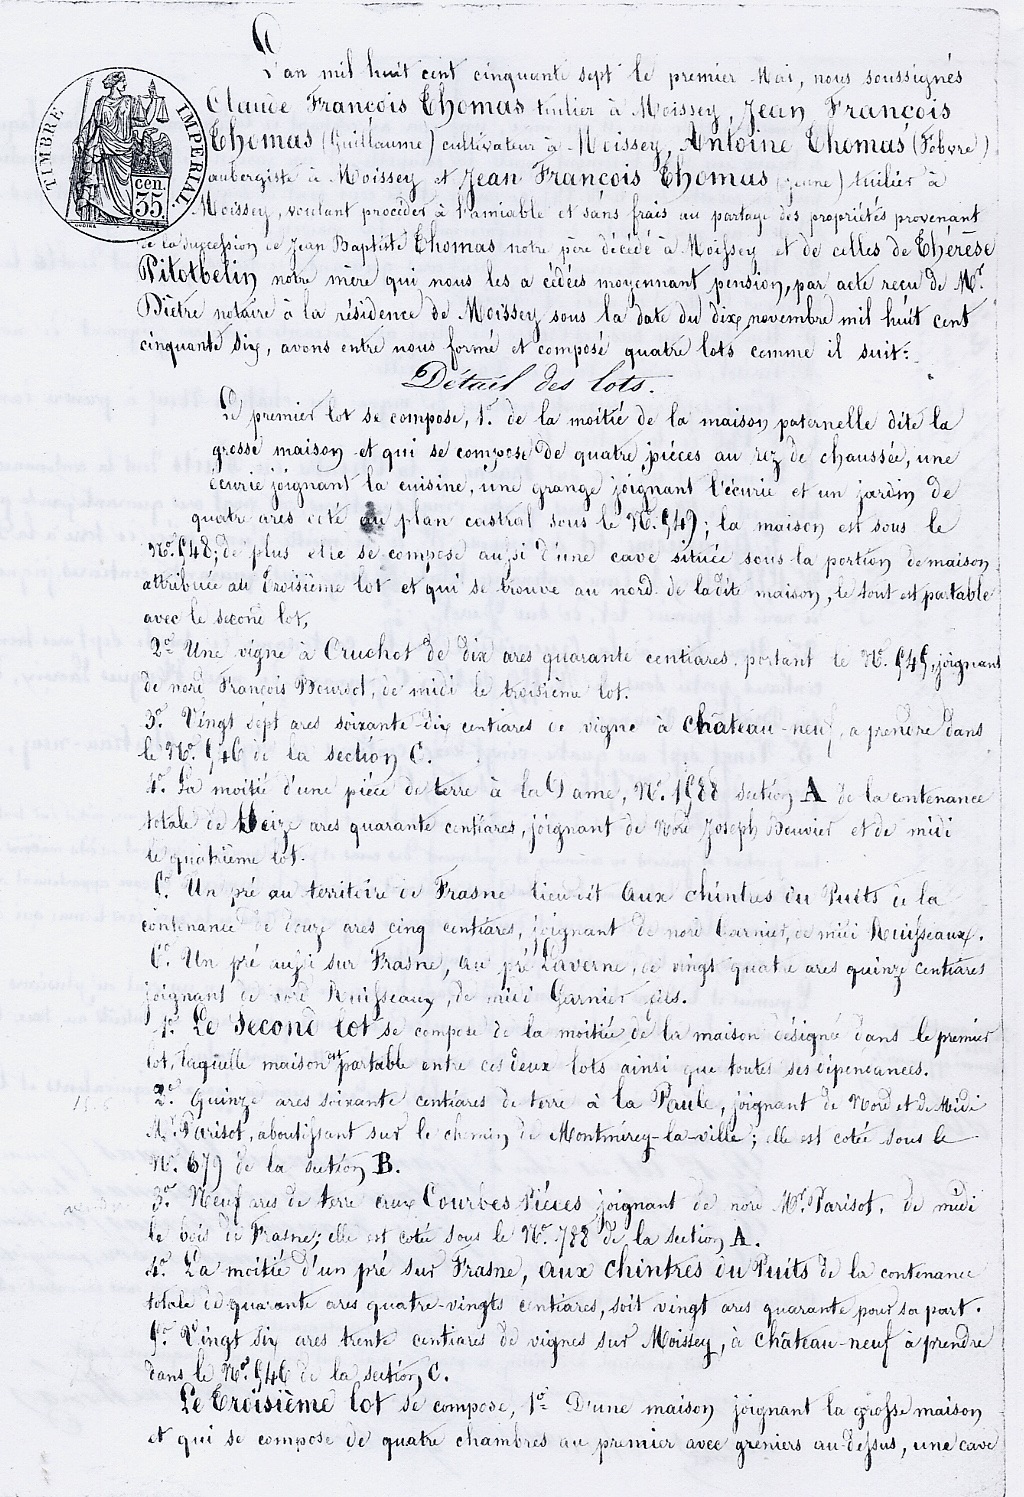 TIMBRE IMPERIAL
35 cen.
L'an mil huit cent cinquante sept le premier Mai, nous soussignés
Claude François Thomas tuilier à Moissey, Jean François
Thomas (Guillaume) cultivateur à Moissey, Antoine Thomas (Febvre)
aubergiste à Moissey et Jean François Thomas (jeune) tuilier à
Moissey, voulant procéder à l'amiable et sans frais au partage des propriétés provenant
de la succession de Jean Baptiste Thomas notre père décédé à Moissey et de celles de Thérèse
Pitotbelin notre mère qui nous les a cédées moyennant pension, par acte reçu de Mr.
notaire à la résidence de Moissey sous la date du dix novembre mil huit cent
cinquante six, avons entre nous formé et composé quatre lots comme il suit:
Détail des lots.
Le premier lot se compose, 1º. de la moitié de la maison paternelle dite la
grosse maison et qui se compose de quatre pièces au rez de chaussée, une
écurie joignant la cuisine, une grange joignant l'écurie et un jardin de
quatre ares coté au plan castral sous le Nº. 549; la maison est sous le
Nº. 548; de plus elle se compose aussi d'une cave située sous la portion de maison
attribuée au troisième lot et qui se trouve au nord de ladite maison, le tout est partable
avec le second lot,
2º. Une vigne à Cruchot de dix ares quarante centiares portant le Nº. 545, joignant
de nord François de midi le troisième lot.
3º. Vingt sept ares soixante-dix centiares de vigne à château-neuf, a prendre dans
le Nº. 546 de la section C.
4º. La moitié d'une pièce de terre à la Dame, Nº. 1588 section A de la contenance
totale de ares quarante centiares, joignant de Nord Joseph Bouvier et de midi
le quatrième lot.
5º. Un pré au territoire de Frasne lieu dit Aux chintres du Puits de la
contenance de douze ares cinq centiares, joignant de nord Garnier, de midi Ruisseaux.
6º. Un pré aussi sur Frasne, au pré Laverne, de vingt quatre ares quinze centiares
joignant de nord Ruisseaux, de midi Garnier
1º. Le Second lot se compose de la moitiée de la maison désignée dans le premier
lot, laquelle maison est partable entre ces deux lots ainsi que toutes ses dépendances.
2º. Quinze ares soixante centiares de terre à la Paule, joignant de Nord et de Midi
Mr. Parisot, aboutissant sur le chemin de Montmirey-la-ville; elle est cotée sous le
Nº. 679 de la section B.
3º. Neuf ares de terre aux Courbes Pièces joignant de nord Mr. Parisot, de midi
le bois de Frasne; elle est cotée sous le Nº. 788 de la section A.
4º. La moitiée d'un pré sur Frasne, aux chintres du Puits de la contenance
totale de quarante ares quatre-vingts centiares, soit vingt ares quarante pour sa part.
5º. Vingt six ares trente centiares de vignes sur Moissey, à château-neuf à prendre
dans le Nº. 546 de la section C.
Le Troisième lot se compose, 1º D'une maison joignant la grosse maison
et qui se compose de quatre chambres au premier avec greniers au-dessus, une cave